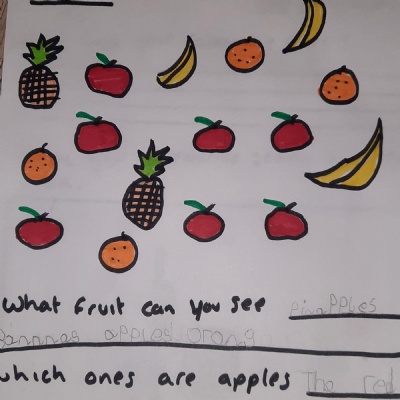 What fruit can you see pinapples
bannnas apples orong
which ones are apples The red